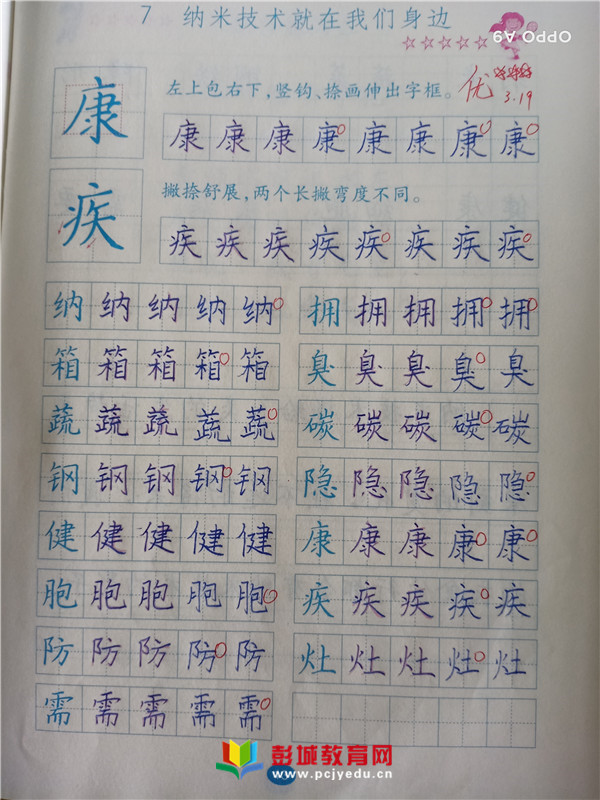 7 纳米技术就在我们身边
OPPO A9
康
左上包右下，竖钩、捺画伸出字框。
优
3.19
康康康康康康康康
疾
撇捺舒展，两个长撇弯度不同。
疾疾疾疾疾疾疾疾
纳纳纳纳纳 拥拥拥拥拥
箱箱箱箱箱 臭臭臭臭臭
蔬蔬蔬蔬蔬 碳碳碳碳碳
钢钢钢钢钢 隐隐隐隐隐
健健健健健 康康康康康
胞胞胞胞胞 疾疾疾疾疾
防防防防防 灶灶灶灶灶
需需需需需
彭城教育网
www.pcjyedu.cn